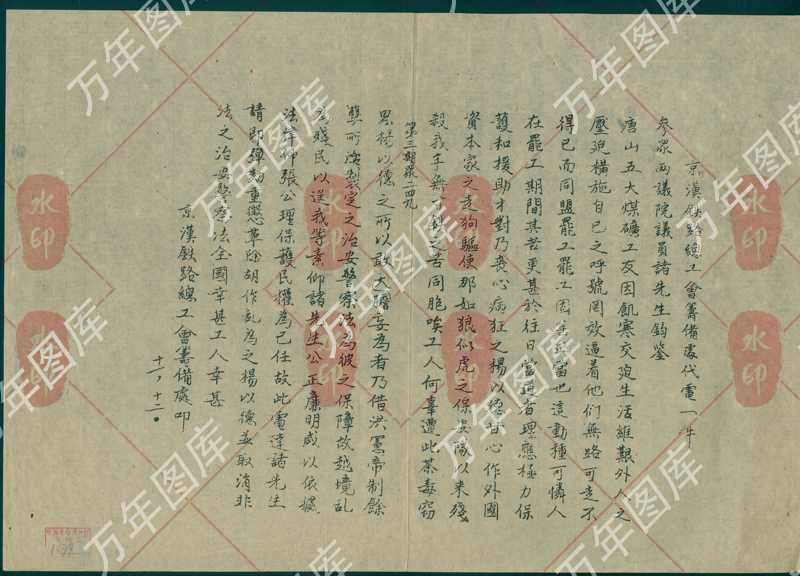 京漢鉄路總工會籌備處代電一件
參眾兩議院議員諸先生鈞鑒
唐山五大煤礦工友因飢寒交迫生活維艱外人之
壓迫橫施自已之呼號罔效逼着他們無路可走不
得已而同盟罷工罷工固至當也這動種可憐人
在罷工期間其苦更甚於往日當道者理應極力保
護和援助才對乃喪心病狂之楊以德甘心作外國
資本家之走狗驅使那如狼似虎之保安隊以來殘
殺我手無寸鐵之苦同胞唉工人何辜遭此荼毒窃
第三期第二四九
思楊以德之所以敢大膽妄為者乃借洪憲帝制餘
孽所演製定之治安警察法為彼之保障故越境乱
為賤民以逞我等素仰諸先生公正廉明咸以依據
法律仰張公理保護民權為己任故此電達諸先生
請即彈劾重懲革除胡作乱為之楊以德並取消非
法之治安警察法全國幸甚工人幸甚
京漢鉄路總工會籌備處叩
十一、十二。
万年图库
水印